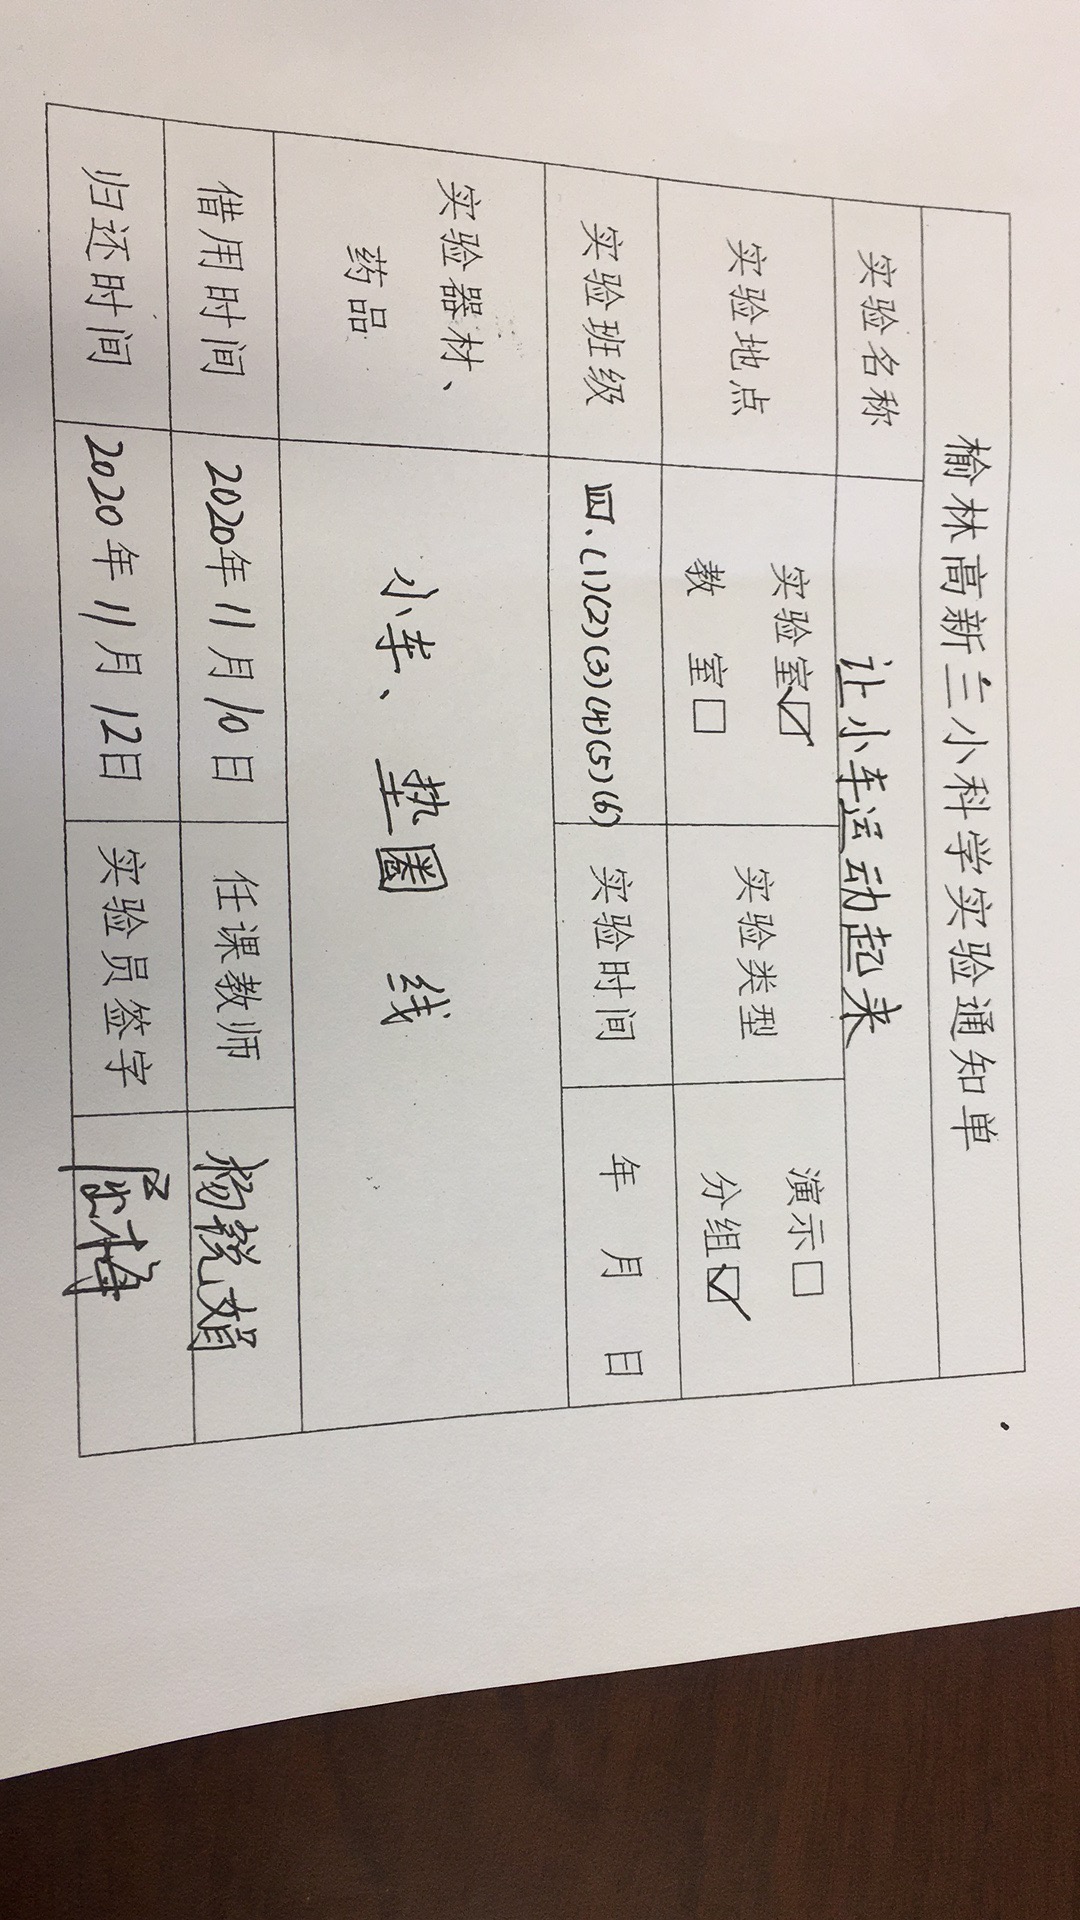 榆林高新三小科学实验通知单
实验名称 让小车运动起来
实验地点 实验室☑ 教 室□ 实验类型 演示□ 分组☑
实验班级 四、(1)(2)(3)(4)(5)(6) 实验时间 年 月 日
实验器材、药品 小车、垫圈 线
借用时间 2020年11月10日 任课教师 杨锐娟
归还时间 2020年11月12日 实验员签字